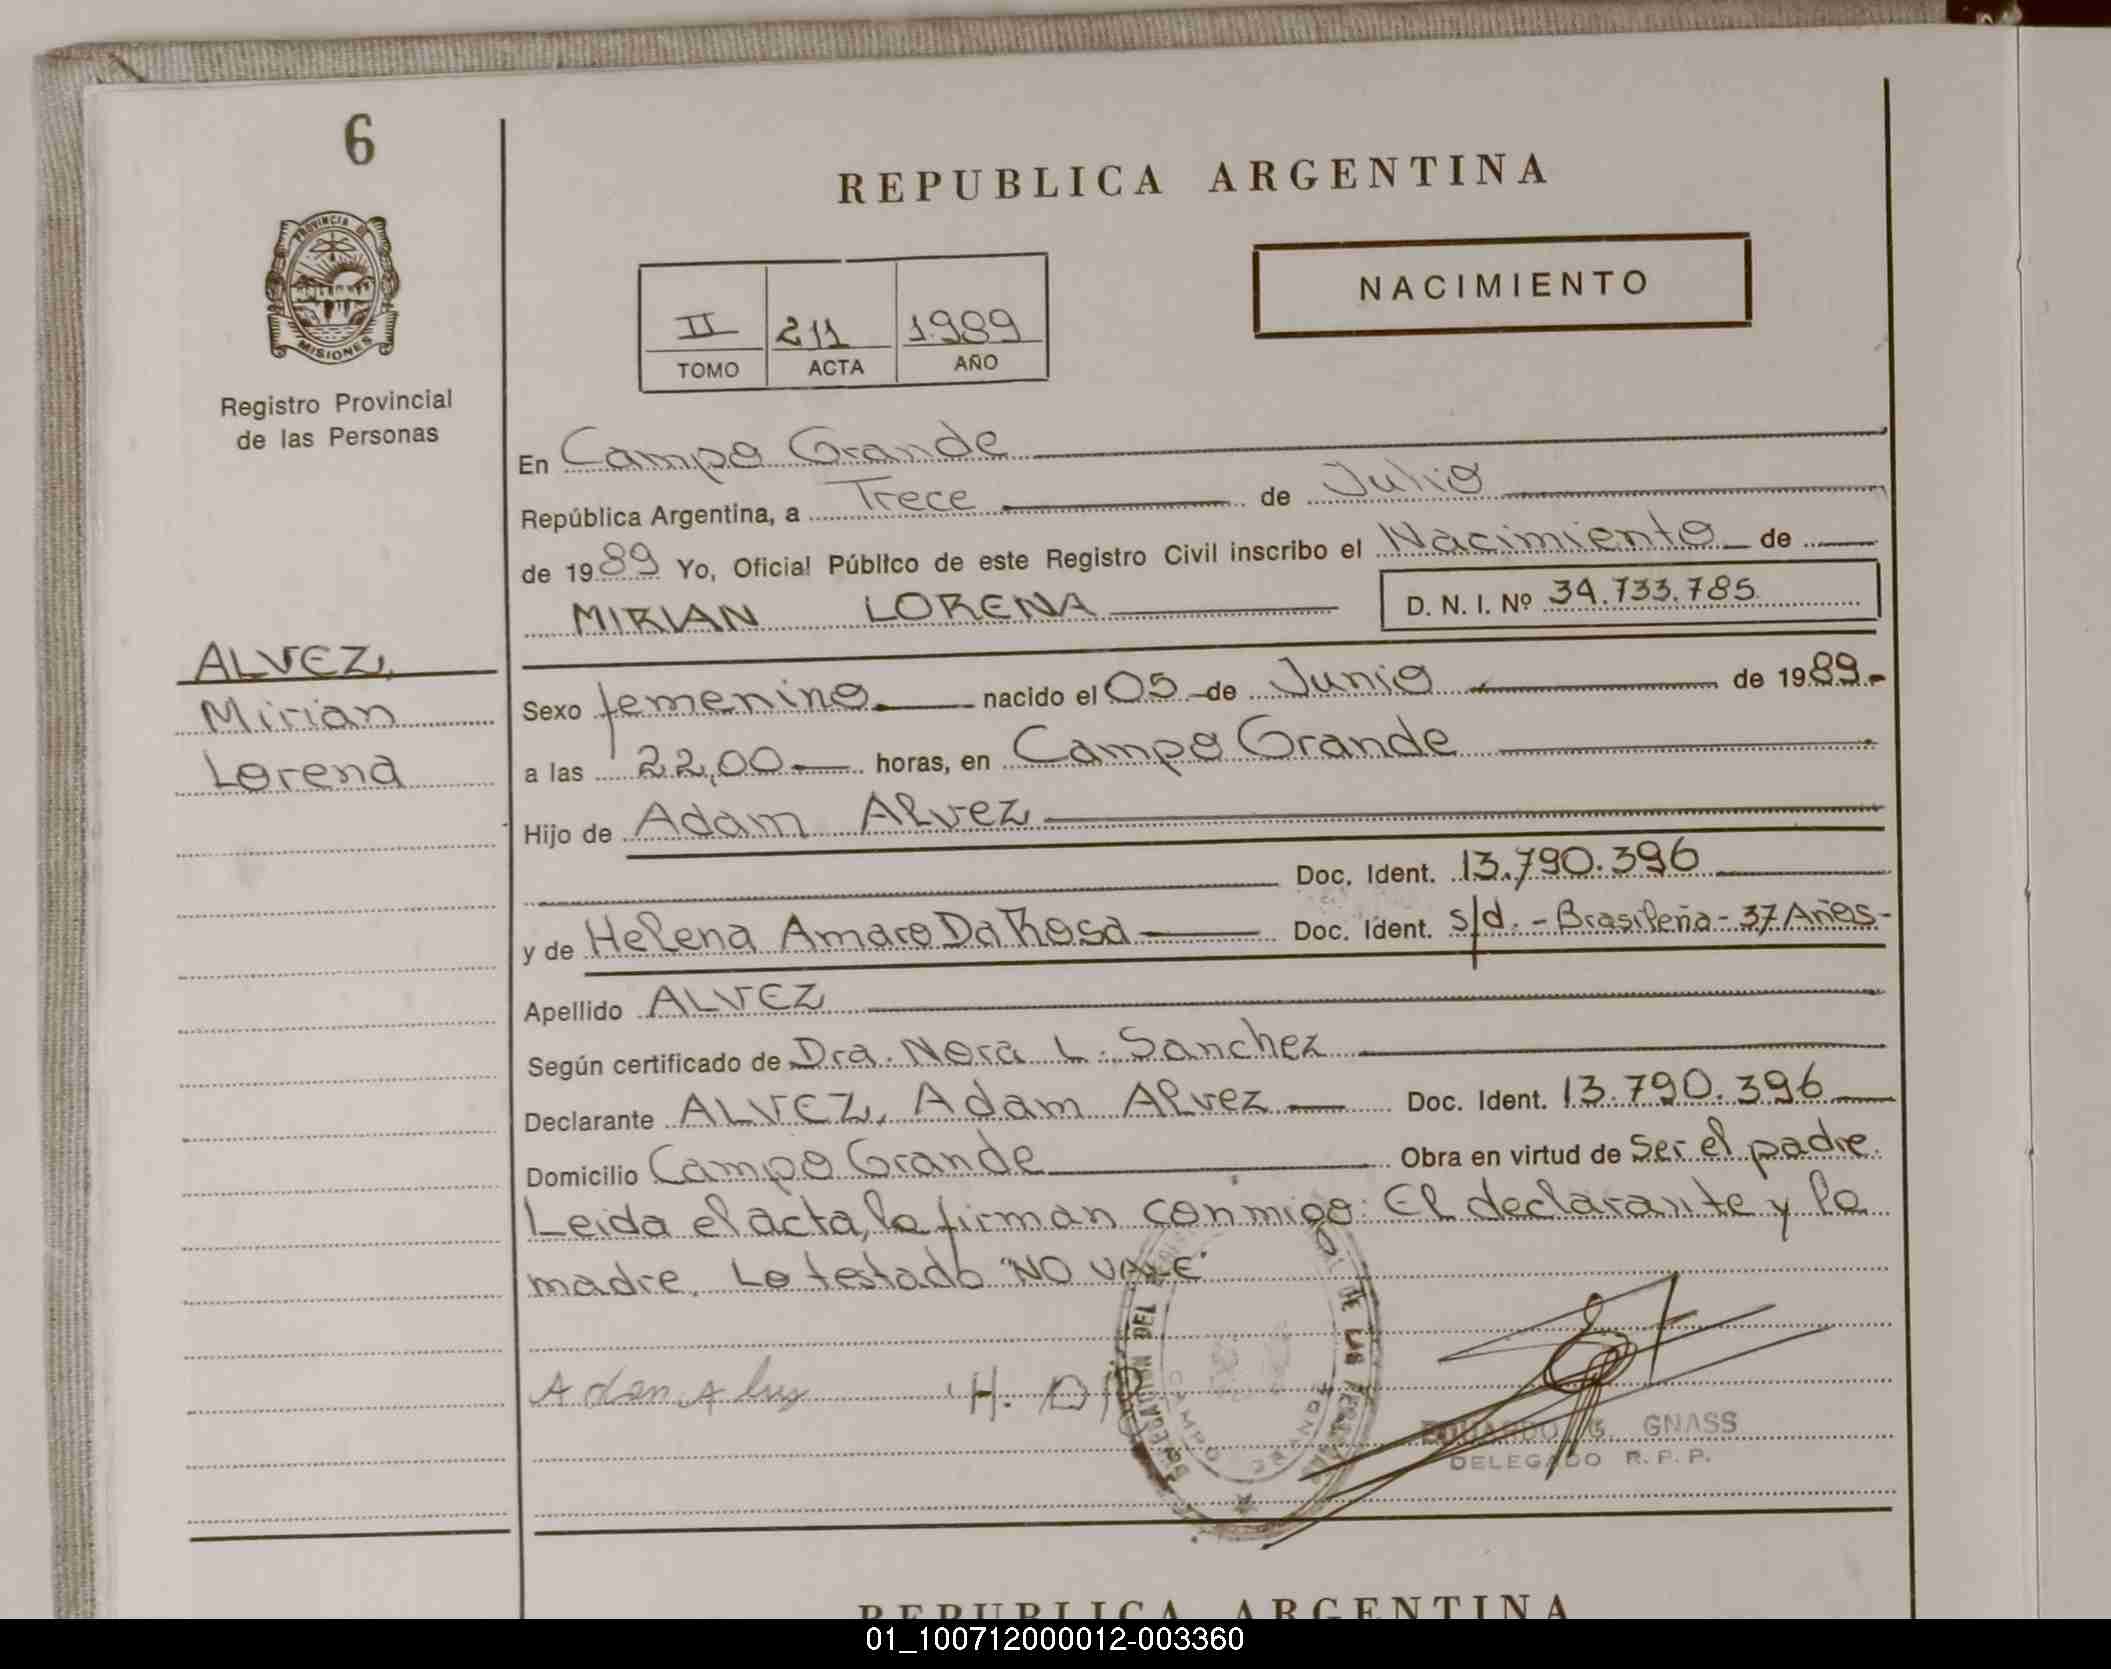 6
PROVINCIA DE
MISIONES
Registro Provincial
de las Personas
REPUBLICA ARGENTINA
NACIMIENTO
II 211 1989
TOMO ACTA AÑO
En Campo Grande
República Argentina, a Trece de Julio
de 1989 Yo, Oficial Público de este Registro Civil inscribo el Nacimiento de
MIRIAN LORENA D. N. I. Nº 34.733.785
ALVEZ,
Mirian
Lorena
Sexo femenino nacido el 05 de Junio de 1989.-
a las 22,00 horas, en Campo Grande
Hijo de Adam Alvez
Doc. Ident. 13.790.396
y de Helena Amaro Da Rosa Doc. Ident. s/d.- Brasileña - 37 Años-
Apellido ALVEZ
Según certificado de Dra. Nora L. Sanchez
Declarante ALVEZ, Adam Alvez Doc. Ident. 13.790.396
Domicilio Campo Grande Obra en virtud de Ser el padre.
Leida el acta, la firman conmigo: El declarante y la
madre. Lo testado "NO VALE"
DELEGACION DEL DE LAS PERSONAS
CAMPO GRANDE
Adan Alves H. D R
EDUARDO G. GNASS
DELEGADO R. P. P.
REPUBLICA ARGENTINA
01_100712000012-003360